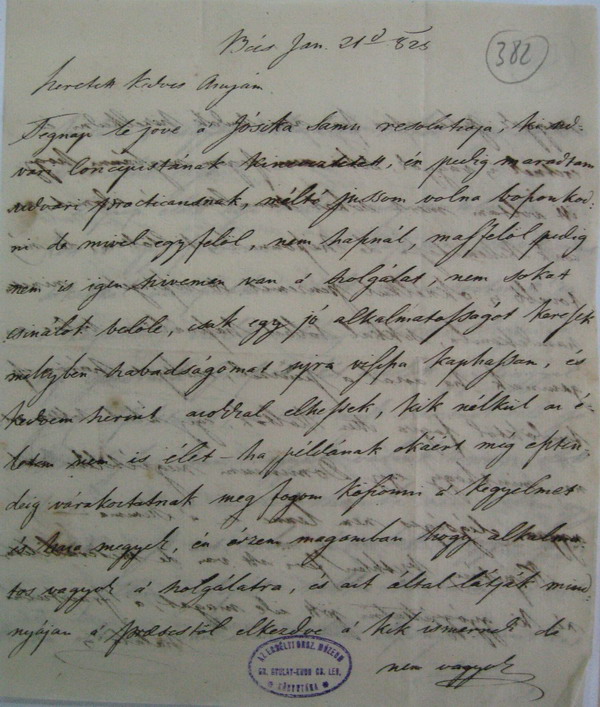 Bécs Jan. 21d 825
382
Szeretett Kedves Anyám.
Tegnap le jöve a Jósika Samu resolutioja, ki ud-
vari Concipistának, én pedig maradtam
udvari practicansnak, méltó jussom volna boponkod-
ni de mivel egy felöl, nem használ, másfelöl pedig
nem is igen szivemen van á szolgálat, nem sokat
csinálok belöle, csak egy jó alkalmatosságot keresek
melyben szabadságomat ujra vissza kaphassam, és
kedvem szerint azokkal élhessek, kik nélkül az é-
letem nem is élet – ha példának okáért még eszten-
deig várakoztatnak meg fogom köszönni á kegyelmet
és haza megyek, én érzem magamban hogy alkalma-
tos vagyok á szolgálatra, és azt által látják mind-
nyájan á præsestöl elkezdve á kik ismernek de
nem vagyok
AZ ERDÉLYI ORSZ. MÚZEUM
GR. GYULAY-KUUN CS. LEV.
KÉZIRATTÁRA